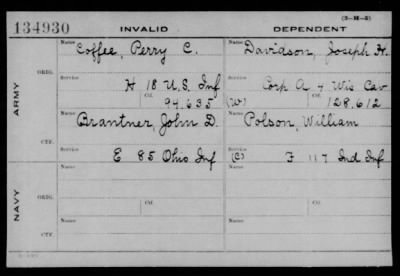 (3-M-2)
134930 INVALID DEPENDENT
Name Coffee, Perry C. Name Davidson, Joseph H.
ARMY
ORIG.
Service H 18 U.S. Inf Service Corp A 4 Wis Cav
Ctf. 94.635 (W) Ctf. 128.612
Name Brantner, John D. Name Polson, William
CTF.
Service E 85 Ohio Inf (C) Service F 117 Ind Inf
NAVY
Name Name
ORIG.
Service Ctf. Service Ctf.
Name Name
CTF.
Service Service